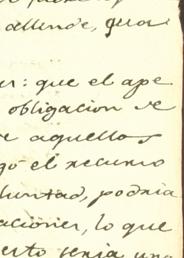 allende, que
er: que el ape
obligacion de
e aquellos
gó el recurso
luntad, podria
aciones, lo que
erto seria una